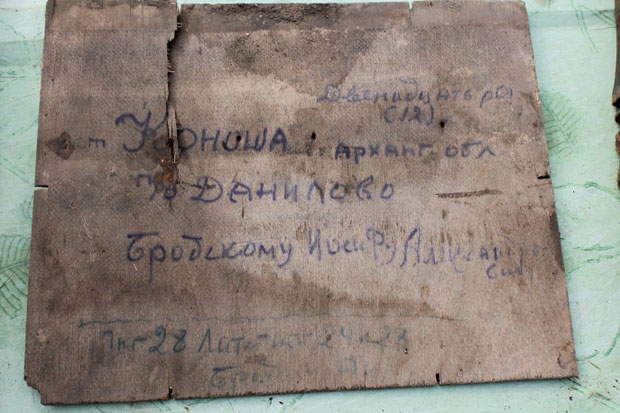 Двенадцать руб
(12)
ст Коноша Арханг. обл
п/о Данилово
Бродскому Иосифу Александро
вичу
Лнг 28 Литейный 24 кв 28
Брод